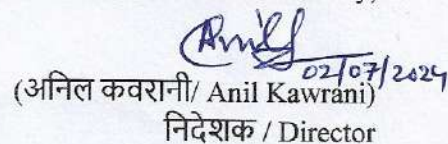 Anil
02/07/2024
(अनिल कवरानी/ Anil Kawrani)
निदेशक / Director